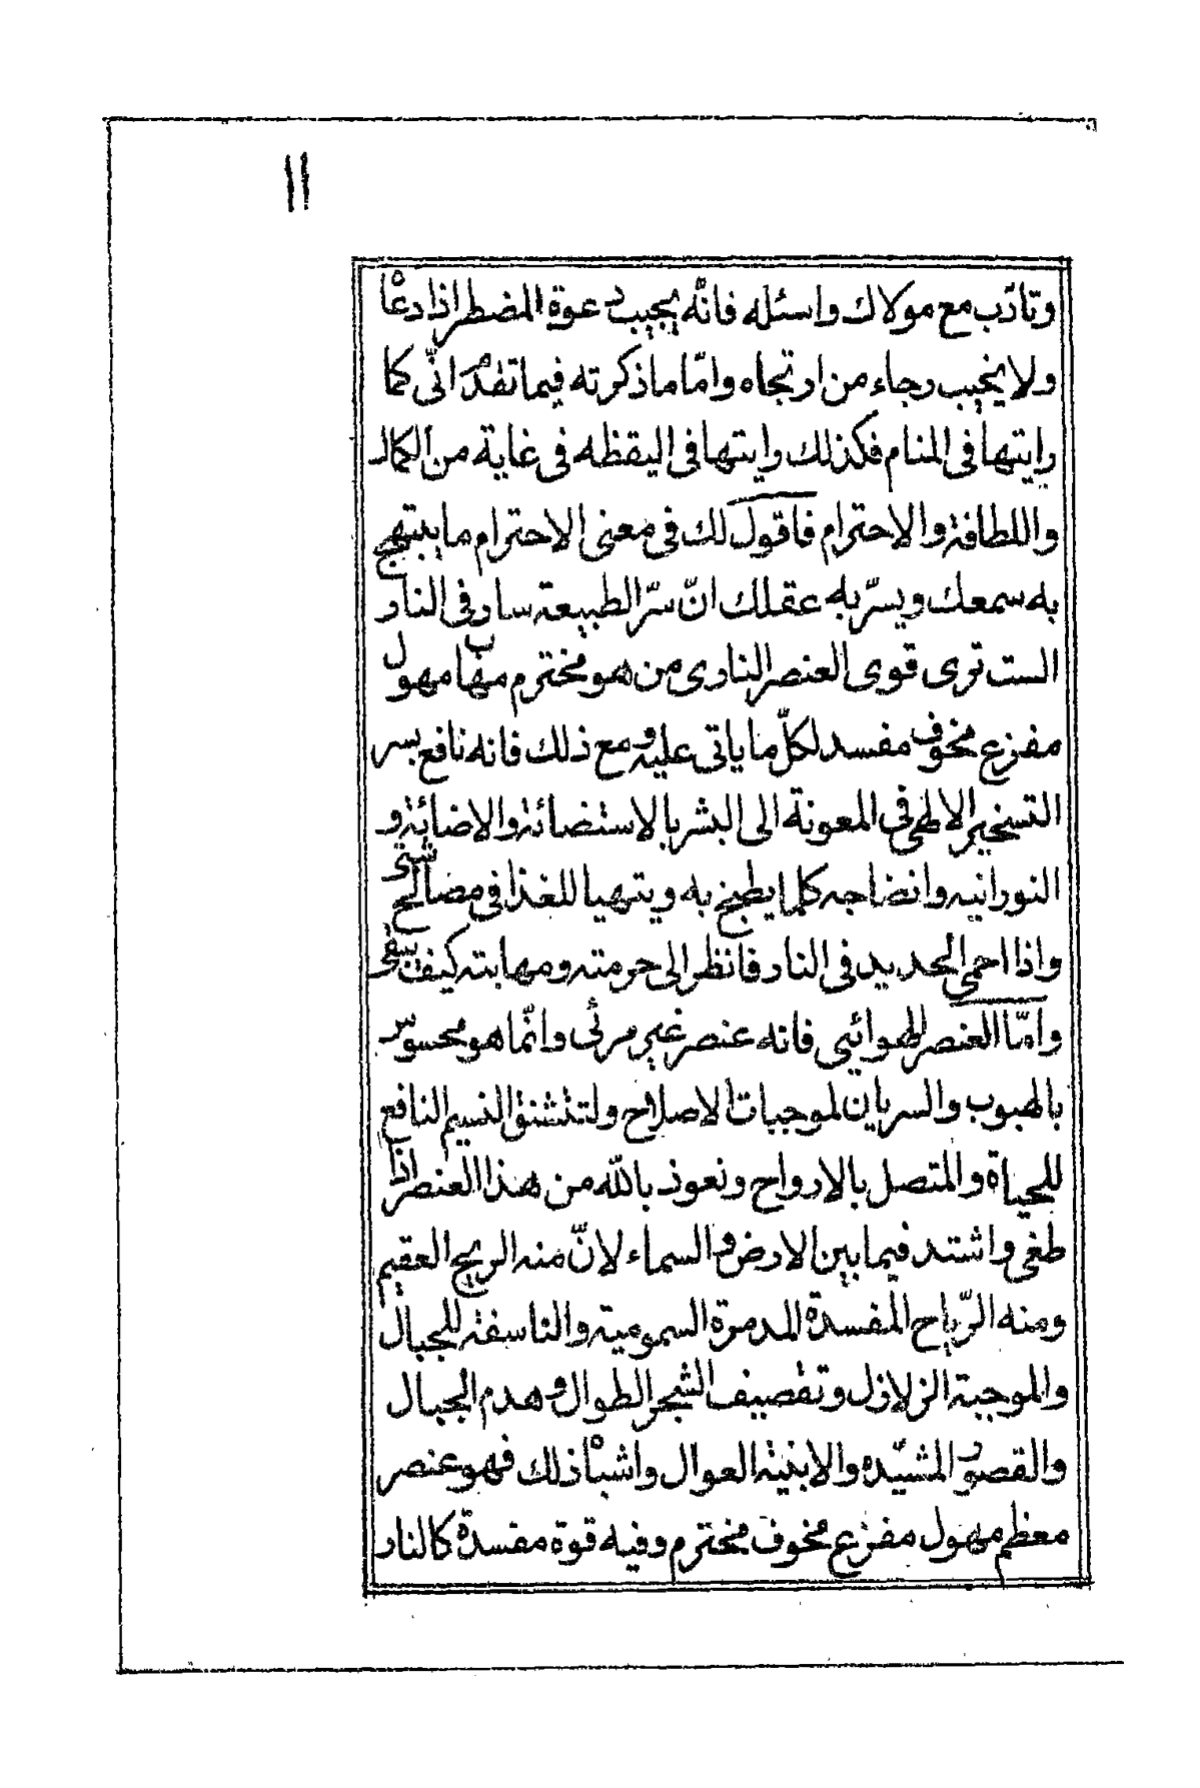 ١١
وتادّب مع مولاك واسئله فانّه يجيب دعوة المضطر اذا دعاه
ولا يخيب رجاء من ارتجاه وامّا ما ذكرته فيما تقدم انّى كما
رايتها فى المنام فكذلك رايتها فى اليقظه فى غاية من الكمال
واللطافة والاحترام فاقول لك فى معنى الاحترام ما يبتهج
به سمعك ويسرّ به عقلك انّ سّر الطبيعة سار فى النار
الست ترى قوى العنصر النارى من هو محترم مهاب مهول
مفزع مخوف مفسد لكلّ ما ياتى عليه ومع ذلك فانه نافع بسر
التسخير الالهى فى المعونة الى البشر بالاستضائة والاضائة و
النورانيه وانضاجه كلما يطبخ به ويتهيا للغذا فى مصالح شتى
واذا احمى الحديد فى النار فانظر الى حرمته ومهابته كيف يبقى
وامّا العنصر الهوائى فانه عنصر غير مرئى وانّما هو محسوس
بالهبوب والسريان لموجبات الاصلاح ولتنشق النسيم النافع
للحياة والمتصل بالارواح ونعوذ بالله من هذا العنصر اذا
طغى واشتد فيما بين الارض والسماء لانّ منه الريح العقيم
ومنه الرّياح المفسدة المدمرة السموميّة والناسفة للجبال
والموجبة الزلازل وتقصيف الشجر الطوال وهدم الجبال
والقصور المشيّده والابنية العوال واشباه ذلك فهو عنصر
معظم مهول مفزع مخوف محترم وفيه قوة مفسدة كالنار